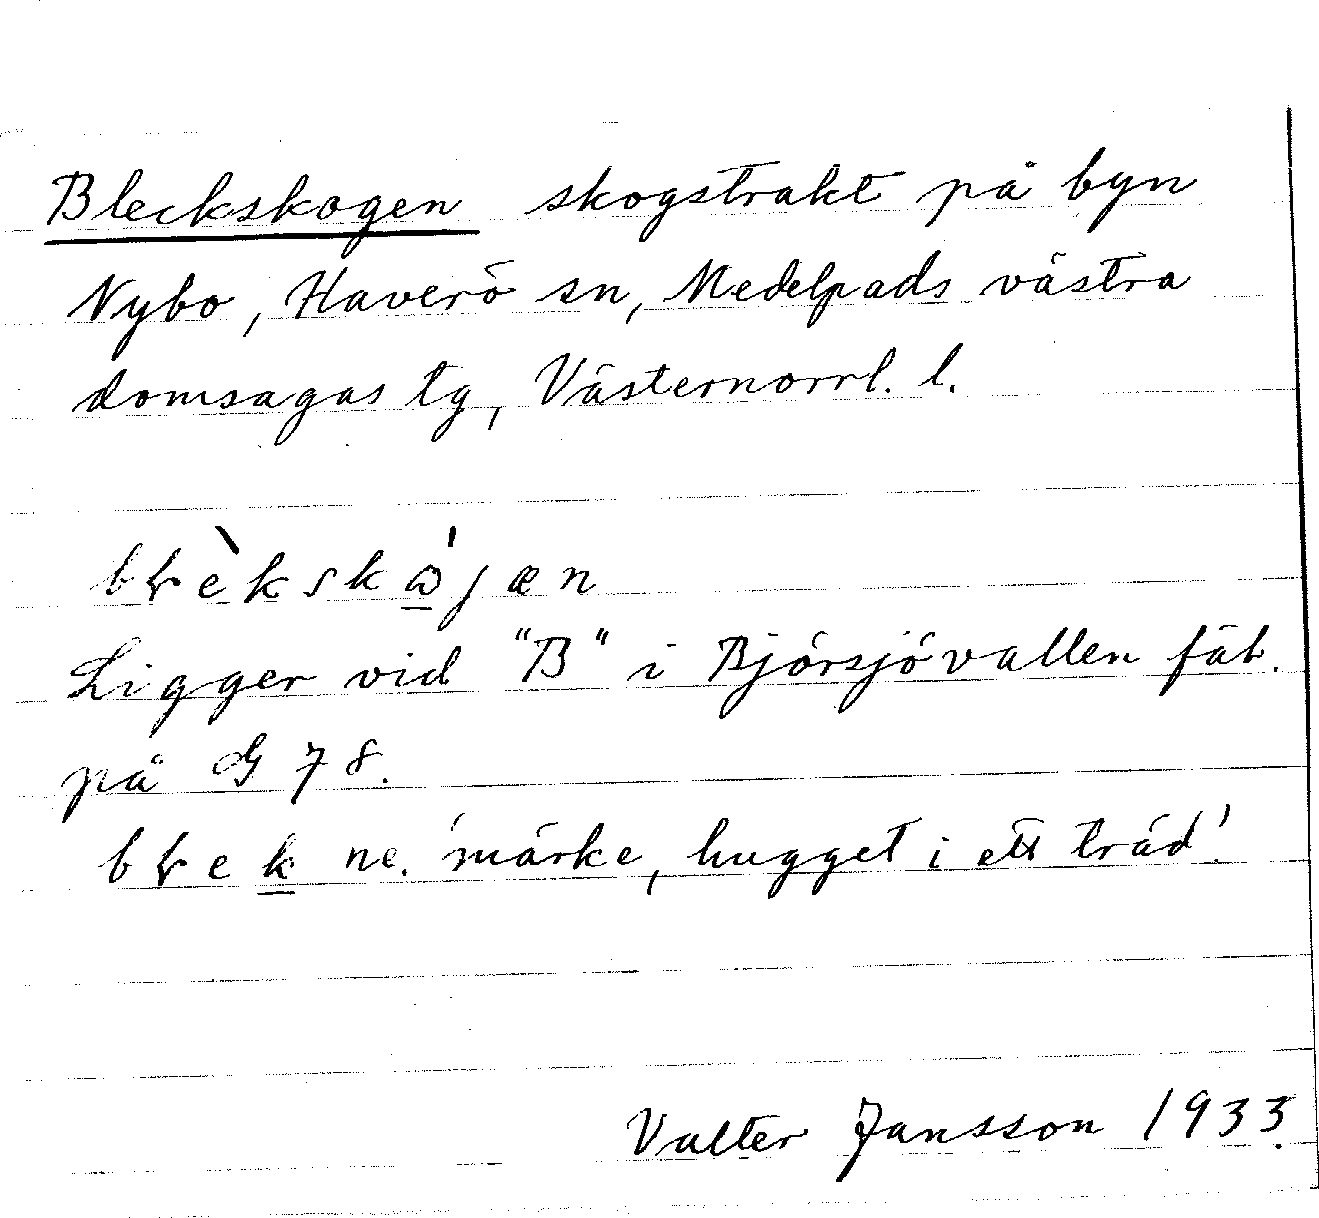 Bleckskogen skogstrakt på byn
Nybo, Haverö sn, Medelpads västra
domsagas tg, Västernorrl. l.
Ligger vid "B" i Björsjövallen fäb.
på G 78.
ne. 'märke, hugget i ett träd'.
Valter Jansson 1933.